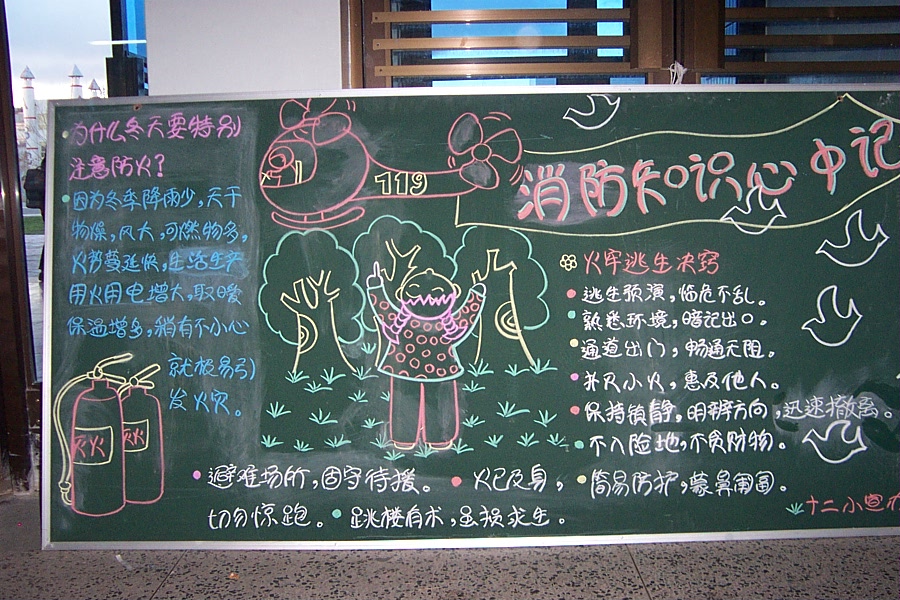 为什么冬天要特别
注意防火?
因为冬季降雨少,天干
物燥,风大,可燃物多,
火势蔓延快,生活生产
用火用电增大,取暖
保温增多,稍有不小心
就极易引
发火灾。
119
消防知识心中记
火牢逃生决窍
逃生预演,临危不乱。
熟悉环境,暗记出口。
通道出门,畅通无阻。
扑灭小火,惠及他人。
保持镇静,明辨方向,迅速撤离。
不入险地,不贪财物。
简易防护,蒙鼻匍匐。
避难场所,固守待援。
火已及身,
切勿惊跑。
跳楼有术,虽损求生。
灭火
灭火
十二小宣